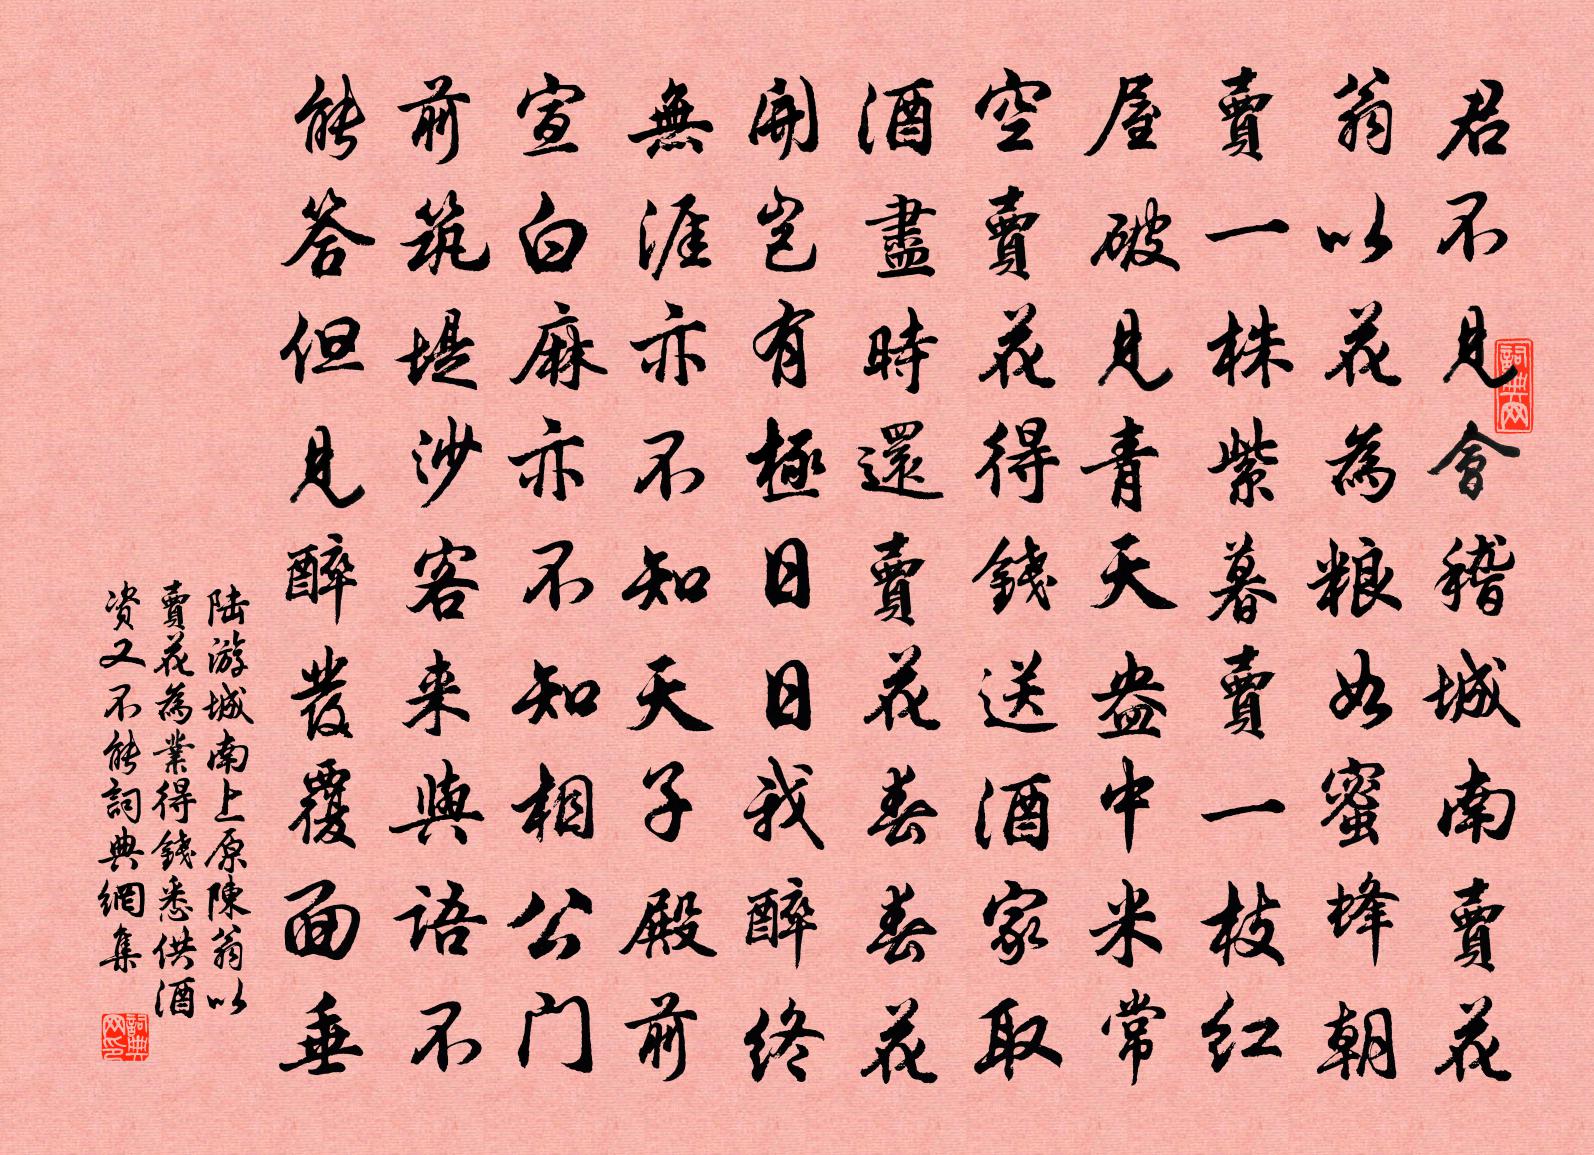 君不見會稽城南賣花
翁以花為粮如蜜蜂朝
賣一株紫暮賣一枝紅
屋破見青天盎中米常
空賣花得錢送酒家取
酒盡時還賣花春春花
開豈有極日日我醉終
無涯亦不知天子殿前
宣白麻亦不知相公门
前筑堤沙客来與语不
能答但見醉髮覆面垂
陆游城南上原陳翁以
賣花為業得錢悉供酒
资又不能詞典網集
詞典网
詞典网印